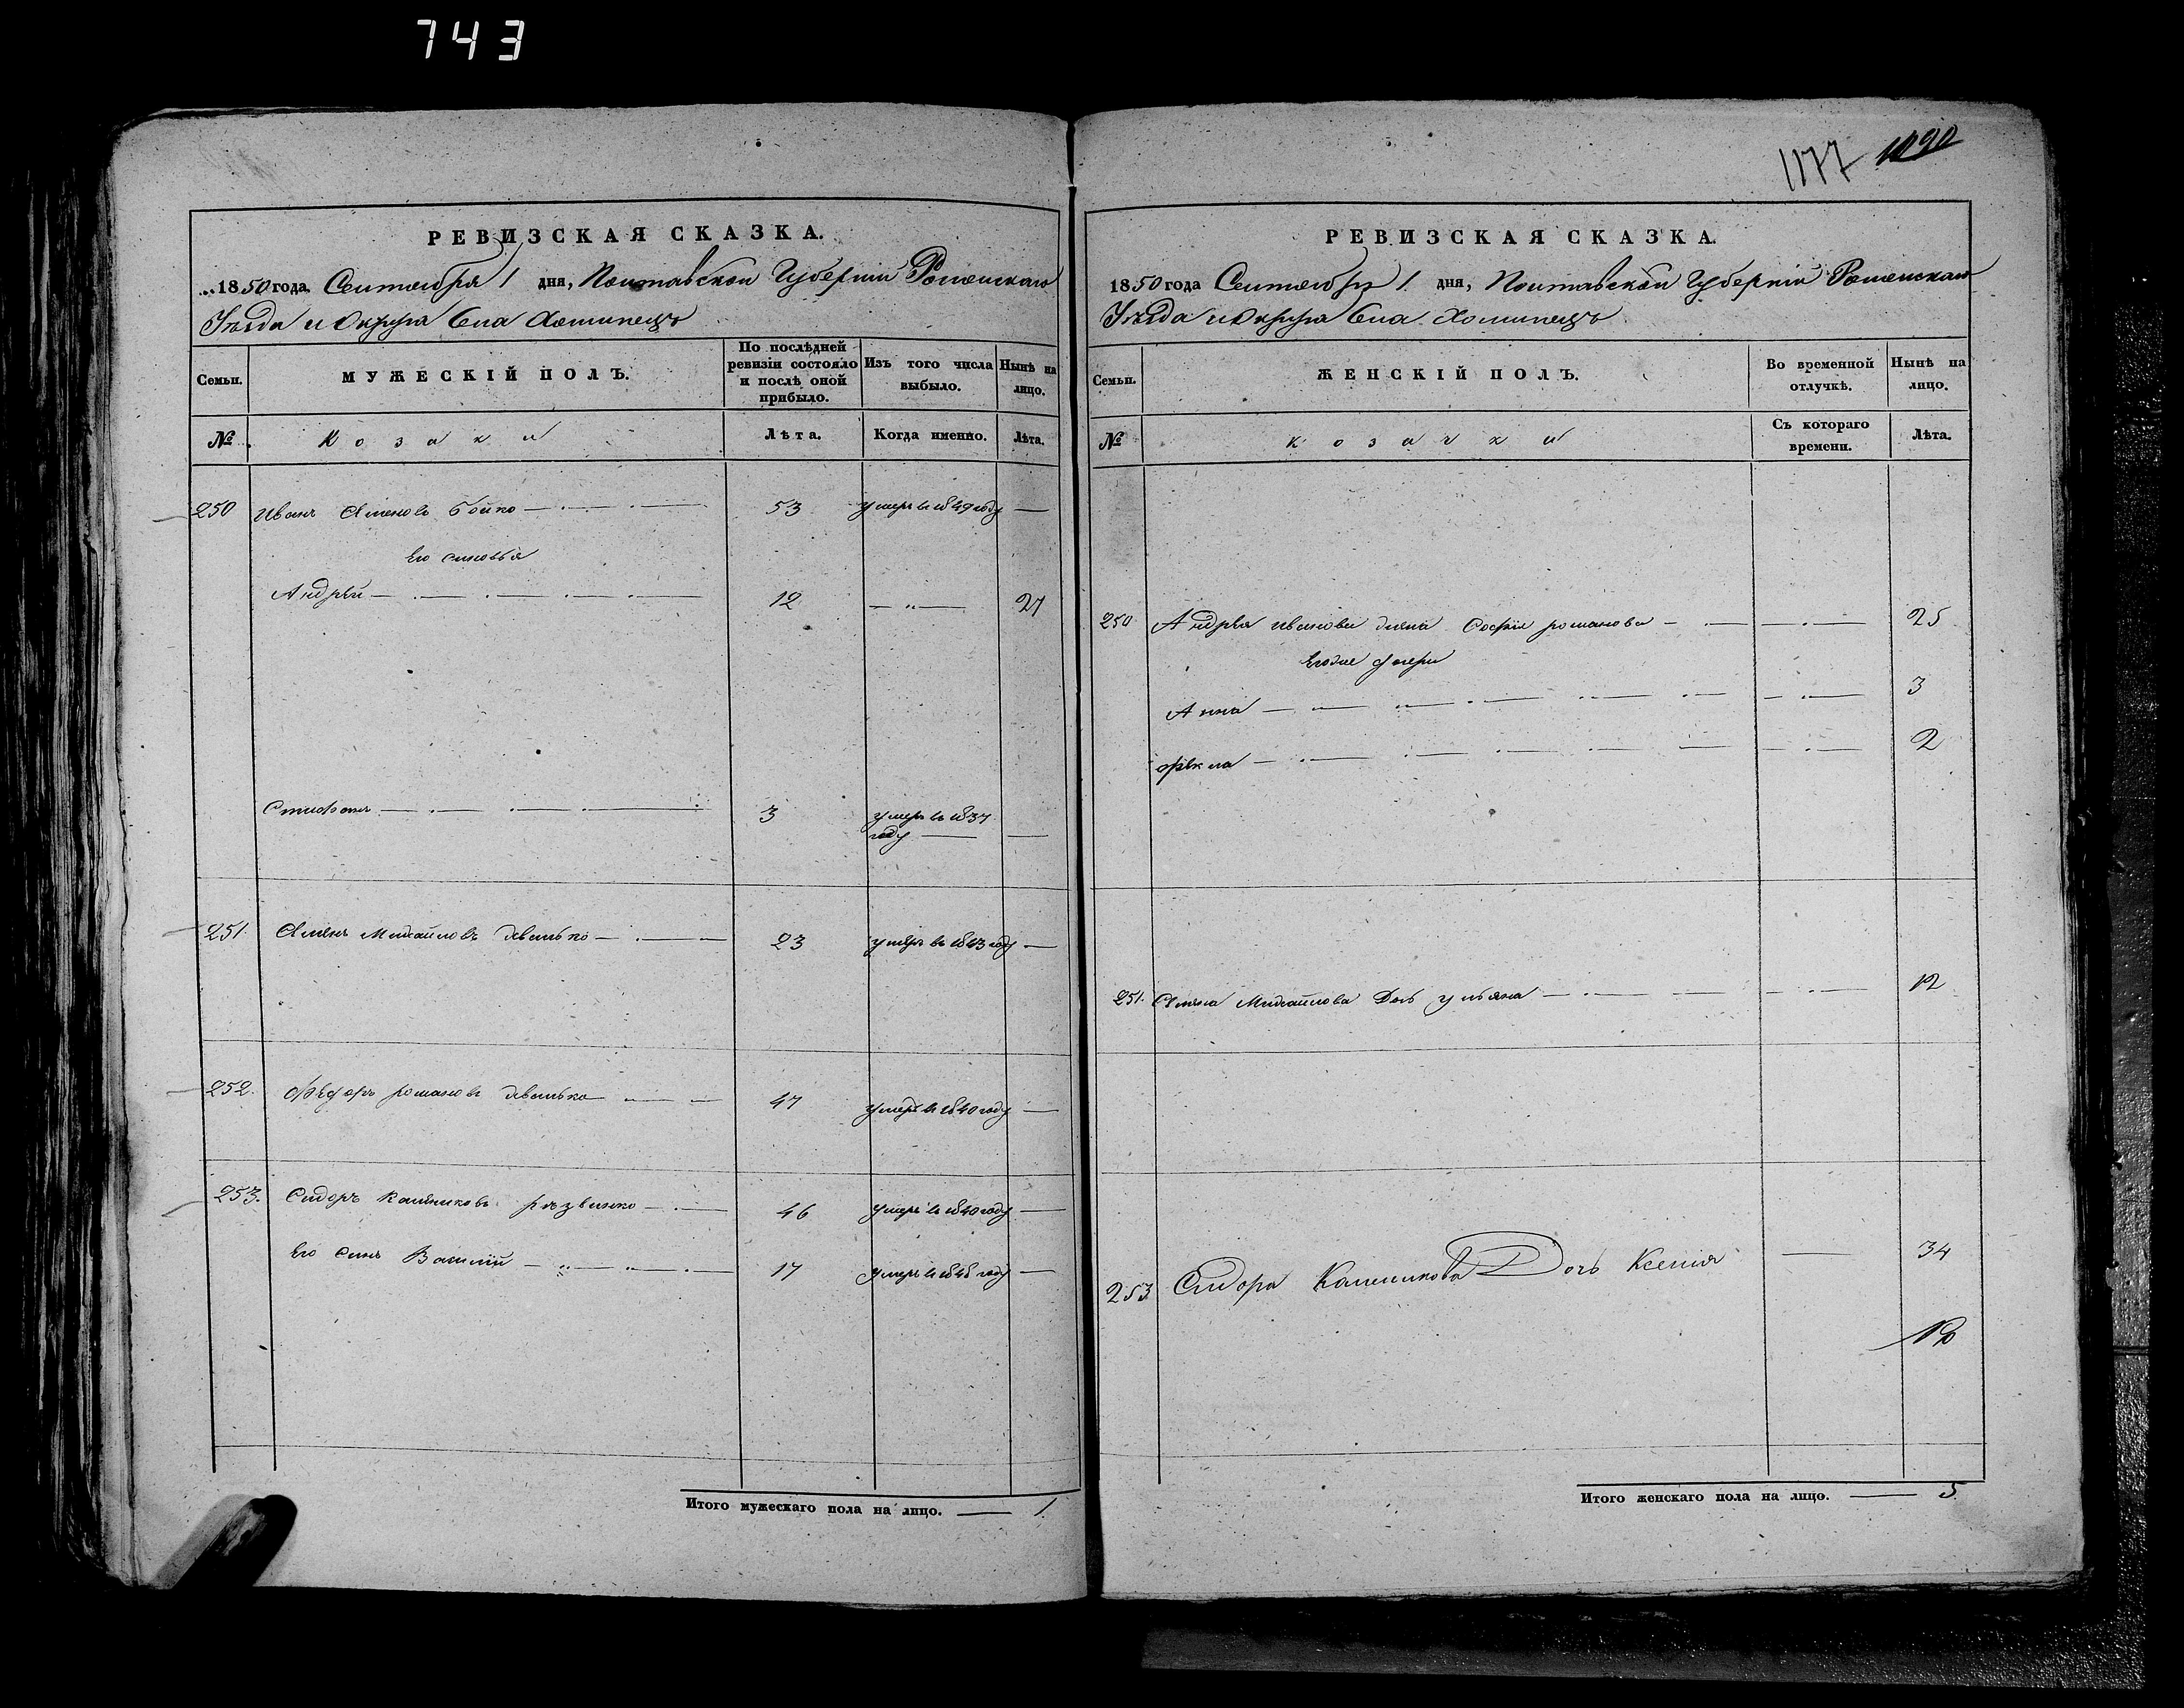 743
РЕВИЗСКАЯ СКАЗКА.
1850 года Сентября 1 дня, Полтавской Губерніи Роменскаго
Уѣзда и Округа Села Хоминецъ
Семьи.
МУЖЕСКІЙ ПОЛЪ.
По послѣдней ревизіи состояло и послѣ оной прибыло.
Изъ того числа выбыло.
Нынѣ на лицо.
№
Козаки
Лѣта.
Когда именно.
Лѣта.
250 Иванъ Семеновъ Бойко 53 умеръ въ 1849 году
Его сыновья
Андрѣй 12 27
Стифанъ 3 умеръ въ 1837
году
251. Семенъ Михайловъ 23 умеръ въ 1843 году
252. Фѣдоръ романовъ 47 умеръ въ 1840 году
253. Сидоръ Калениковъ 46 умеръ въ 1840 году
Его Сынъ Василій 17 умеръ въ 1848 году
Итого мужескаго пола на лицо. 1.
1177 1090
РЕВИЗСКАЯ СКАЗКА.
1850 года Сентября 1. дня, Полтавской Губерніи Роменскаго
Уѣзда и Округа Села Хоминецъ
Семьи.
ЖЕНСКІЙ ПОЛЪ.
Во временной отлучкѣ.
Нынѣ на лицо.
№
козачки
Съ котораго времени.
Лѣта.
250 Андрѣя иванова жена Софія романова 25
Егоже дочери
Анна 3
фѣкла 2
251. Семена Михайлова Дочь ульяна 12
253 Сидора Каленикова Дочь Ксенія 34
Итого женскаго пола на лицо. 5